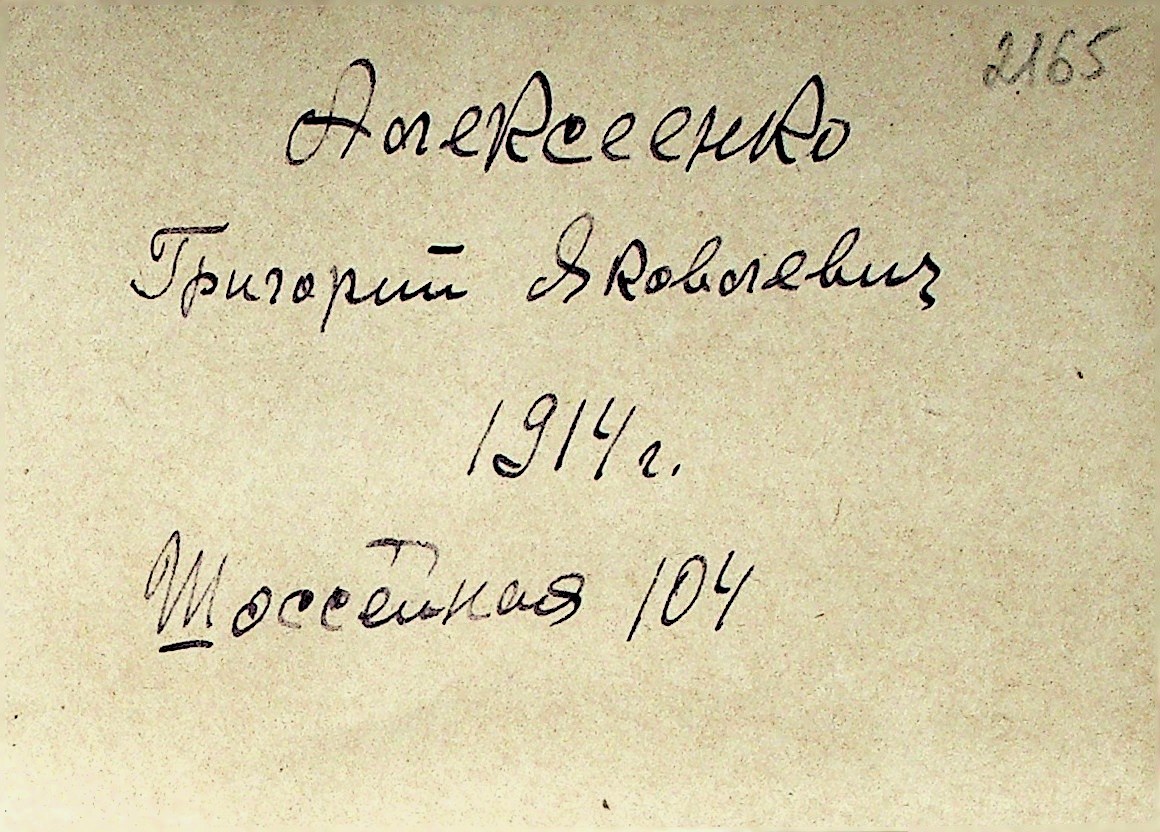 2165
Алексеенко
Григорий Яковлевич
1914 г.
Шоссейная 104